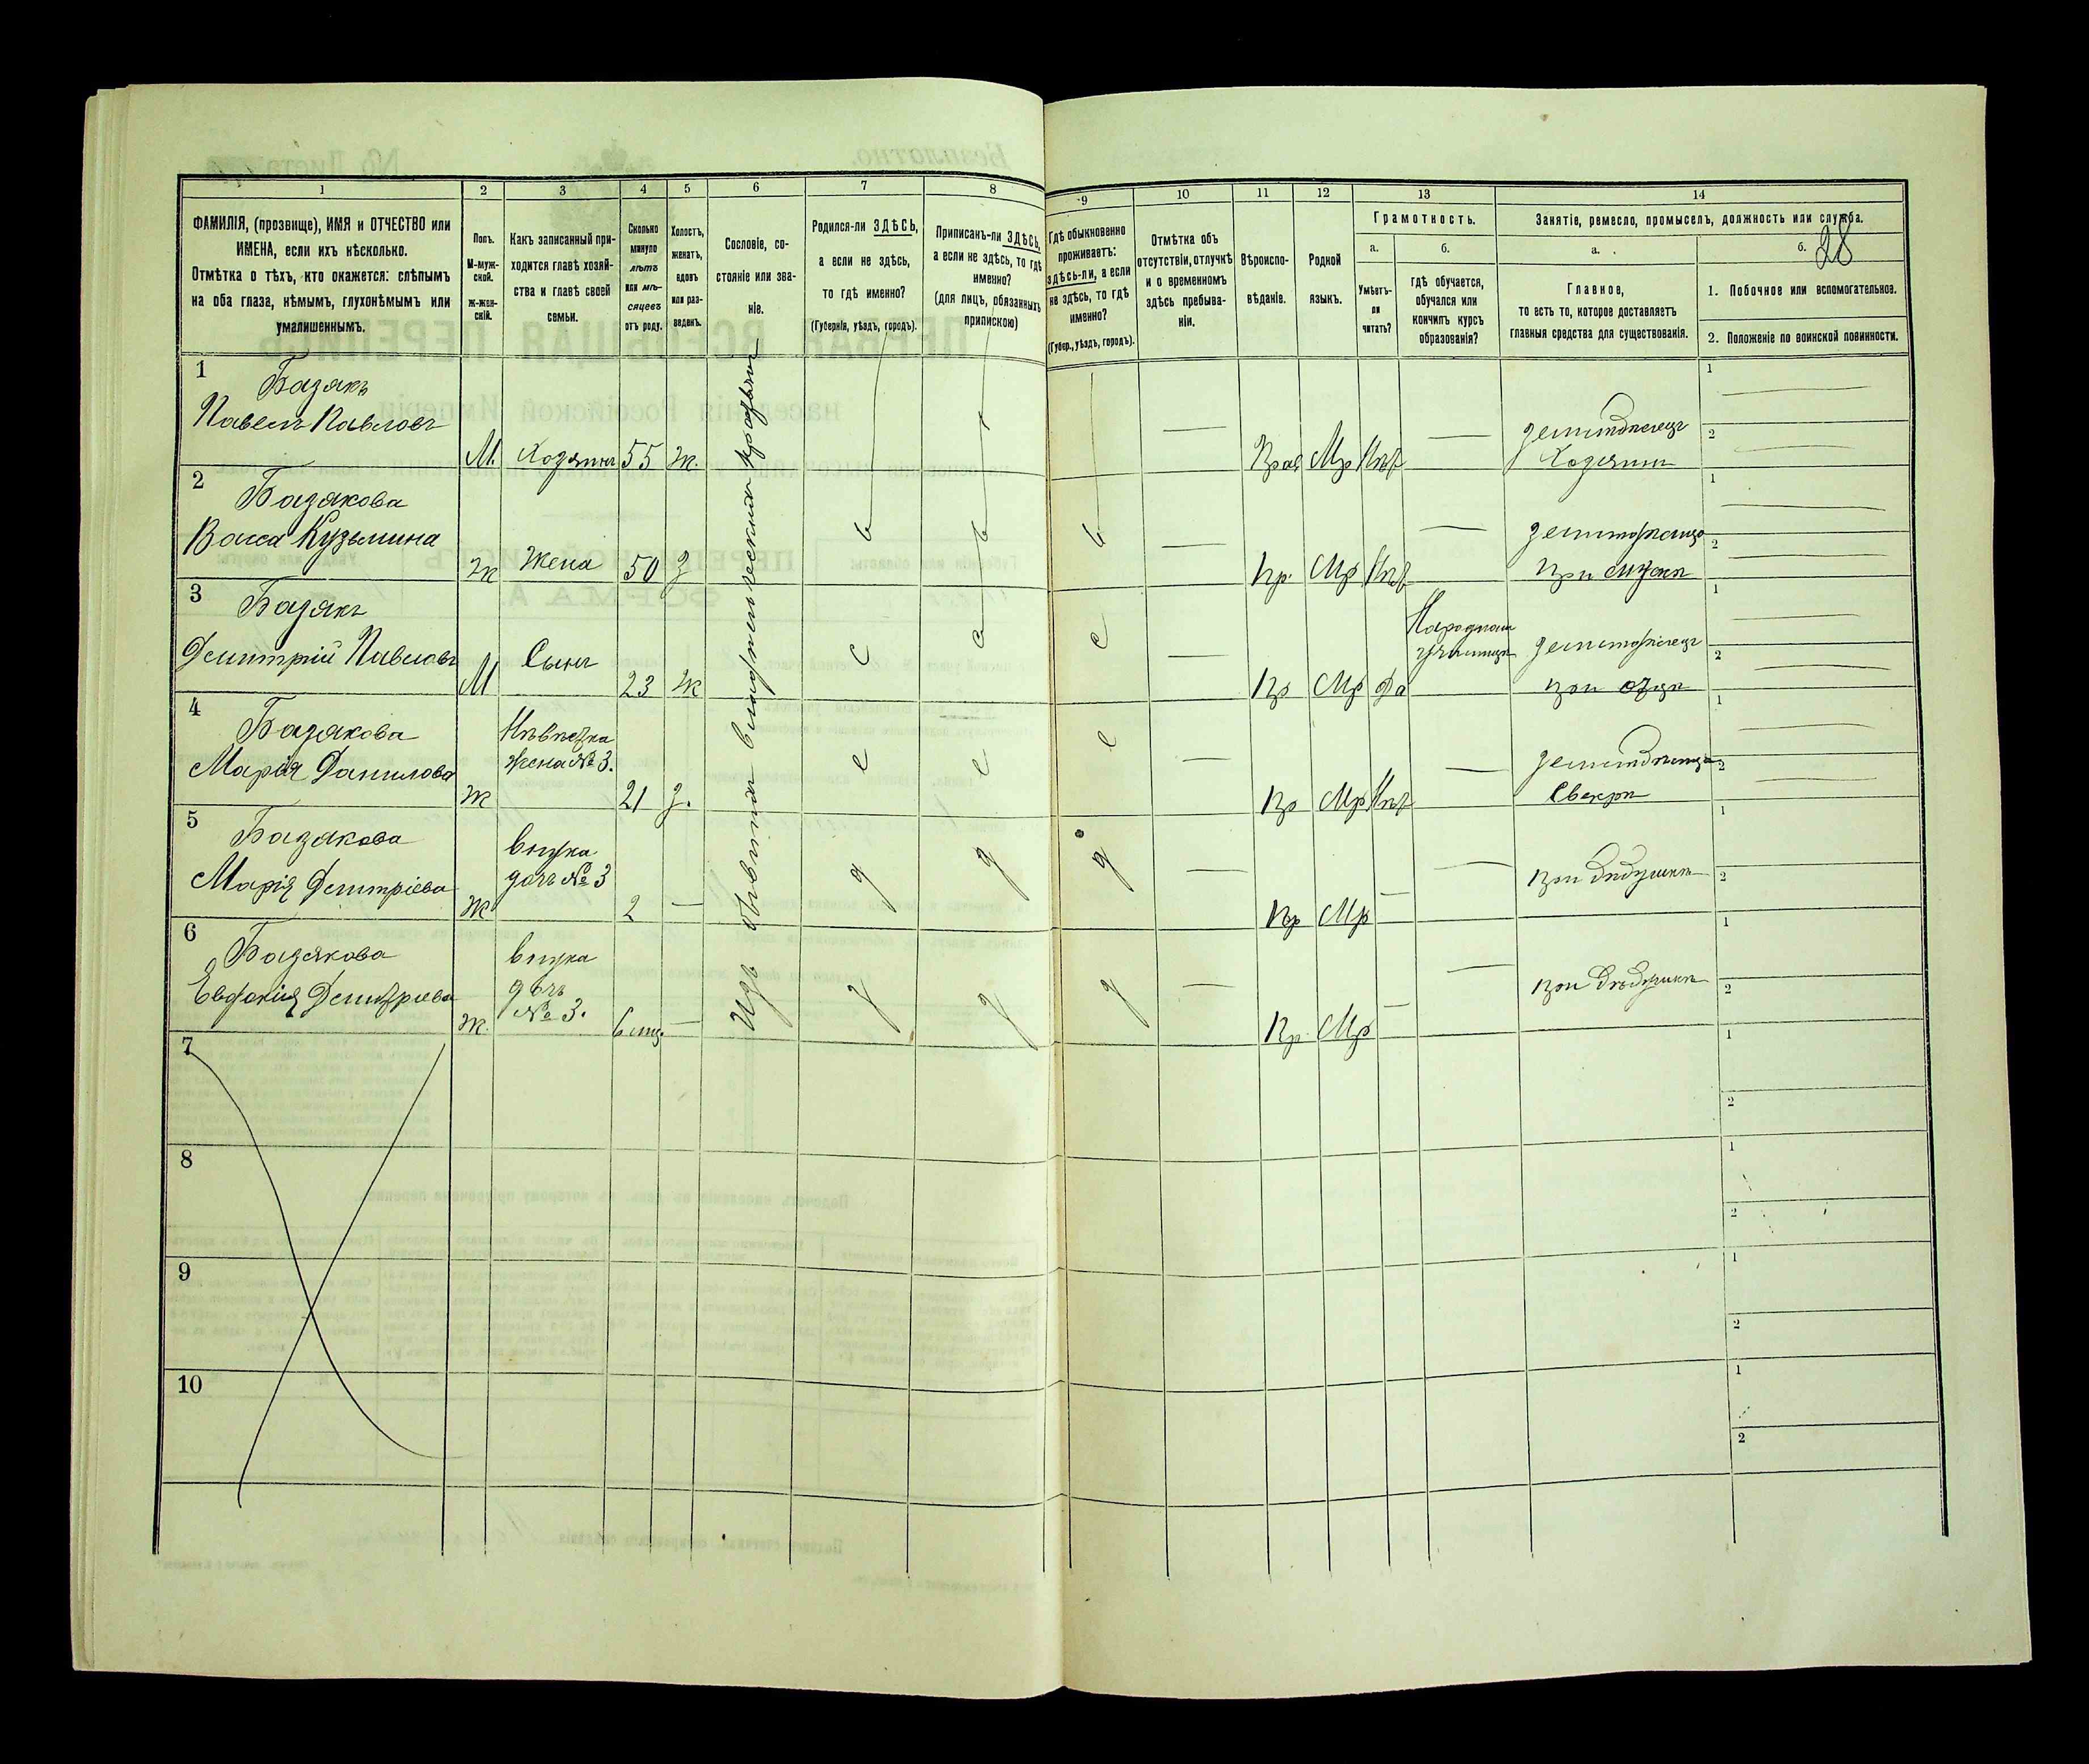 1 2 3 4 5 6 7 8 9 10 11 12 13 14
ФАМИЛІЯ, (прозвище), ИМЯ и ОТЧЕСТВО или
ИМЕНА, если ихъ нѣсколько.
Отмѣтка о тѣхъ, кто окажется: слѣпымъ
на оба глаза, нѣмымъ, глухонѣмымъ или
умалишеннымъ.
Полъ.
М-муж-
ской.
Ж-жен-
скій.
Какъ записанный при-
ходится главѣ хозяй-
ства и главѣ своей
семьи.
Сколько
минуло
лѣтъ
или мѣ-
сяцевъ
отъ роду.
Холостъ,
женатъ,
вдовъ
или раз-
веденъ.
Сословіе, со-
стояніе или зва-
ніе.
Родился-ли ЗДѢСЬ,
а если не здѣсь,
то гдѣ именно?
(Губернія, уѣздъ, городъ).
Приписанъ-ли ЗДѢСЬ,
а если не здѣсь, то гдѣ
именно?
(для лицъ, обязанныхъ
припискою)
Гдѣ обыкновенно
проживаетъ:
здѣсь-ли, а если
не здѣсь, то гдѣ
именно?
(Губер., уѣздъ, городъ).
Отмѣтка объ
отсутствіи, отлучкѣ
и о временномъ
здѣсь пребыва-
ніи.
Вѣроиспо-
вѣданіе.
Родной
языкъ.
Грамотность.
а.
Умѣетъ-
ли
читать?
б.
гдѣ обучается,
обучался или
кончилъ курсъ
образованія?
Занятіе, ремесло, промыселъ, должность или служба.
а.
Главное,
то есть то, которое доставляетъ
главныя средства для существованія.
б.
28
1. Побочное или вспомогательное.
2. Положеніе по воинской повинности.
Изъ бывшихъ владѣльческихъ крестьянъ
здѣсь
здѣсь
здѣсь
1
Базякъ
Павелъ Павловъ
М. Хозяинъ 55 ж.
Прав Мр Нѣт
земледѣлецъ
Хозяинъ
1
2
2
Базякова
Васса Кузьмина
Ж Жена 50 З
Пр. Мр Нѣт
При мужѣ
1
2
3
Базякъ
Дмитрій Павловъ
М Сынъ 23 Ж
Пр Мр Да
Народномъ
училищѣ
земледѣлецъ
при отцѣ
1
2
4
Базякова
Марія Данилова
Невѣстка
жена № 3.
Ж 21 З.
Пр Мр Нѣт
Свекрѣ
1
2
5
Базякова
Марія Дмитріева
внучка
дочь № 3
Ж 2
Пр Мр
при дѣдушкѣ
1
2
6
Базякова
Дмитріева
внучка
дочь
№ 3.
Ж 6 мц.
Пр. Мр
при дѣдушкѣ
1
2
7
1
2
8
1
2
9
1
2
10
1
2